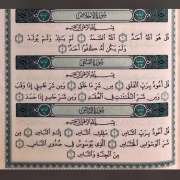 سُورَةُ الإِخْلَاصِ
بِسْمِ اللَّهِ الرَّحْمَٰنِ الرَّحِيمِ
قُلْ هُوَ اللَّهُ أَحَدٌ ۝ اللَّهُ الصَّمَدُ ۝ لَمْ يَلِدْ وَلَمْ يُولَدْ
۝ وَلَمْ يَكُن لَّهُ كُفُوًا أَحَدٌ ۝
سُورَةُ الفَلَقِ
بِسْمِ اللَّهِ الرَّحْمَٰنِ الرَّحِيمِ
قُلْ أَعُوذُ بِرَبِّ الْفَلَقِ ۝ مِن شَرِّ مَا خَلَقَ ۝ وَمِن شَرِّ غَاسِقٍ إِذَا وَقَبَ
۝ وَمِن شَرِّ النَّفَّاثَاتِ فِي الْعُقَدِ ۝ وَمِن شَرِّ حَاسِدٍ إِذَا حَسَدَ ۝
سُورَةُ النَّاسِ
بِسْمِ اللَّهِ الرَّحْمَٰنِ الرَّحِيمِ
قُلْ أَعُوذُ بِرَبِّ النَّاسِ ۝ مَلِكِ النَّاسِ ۝ إِلَٰهِ النَّاسِ ۝ مِن
شَرِّ الْوَسْوَاسِ الْخَنَّاسِ ۝ الَّذِي يُوَسْوِسُ فِي صُدُورِ النَّاسِ ۝
مِنَ الْجِنَّةِ وَالنَّاسِ ۝